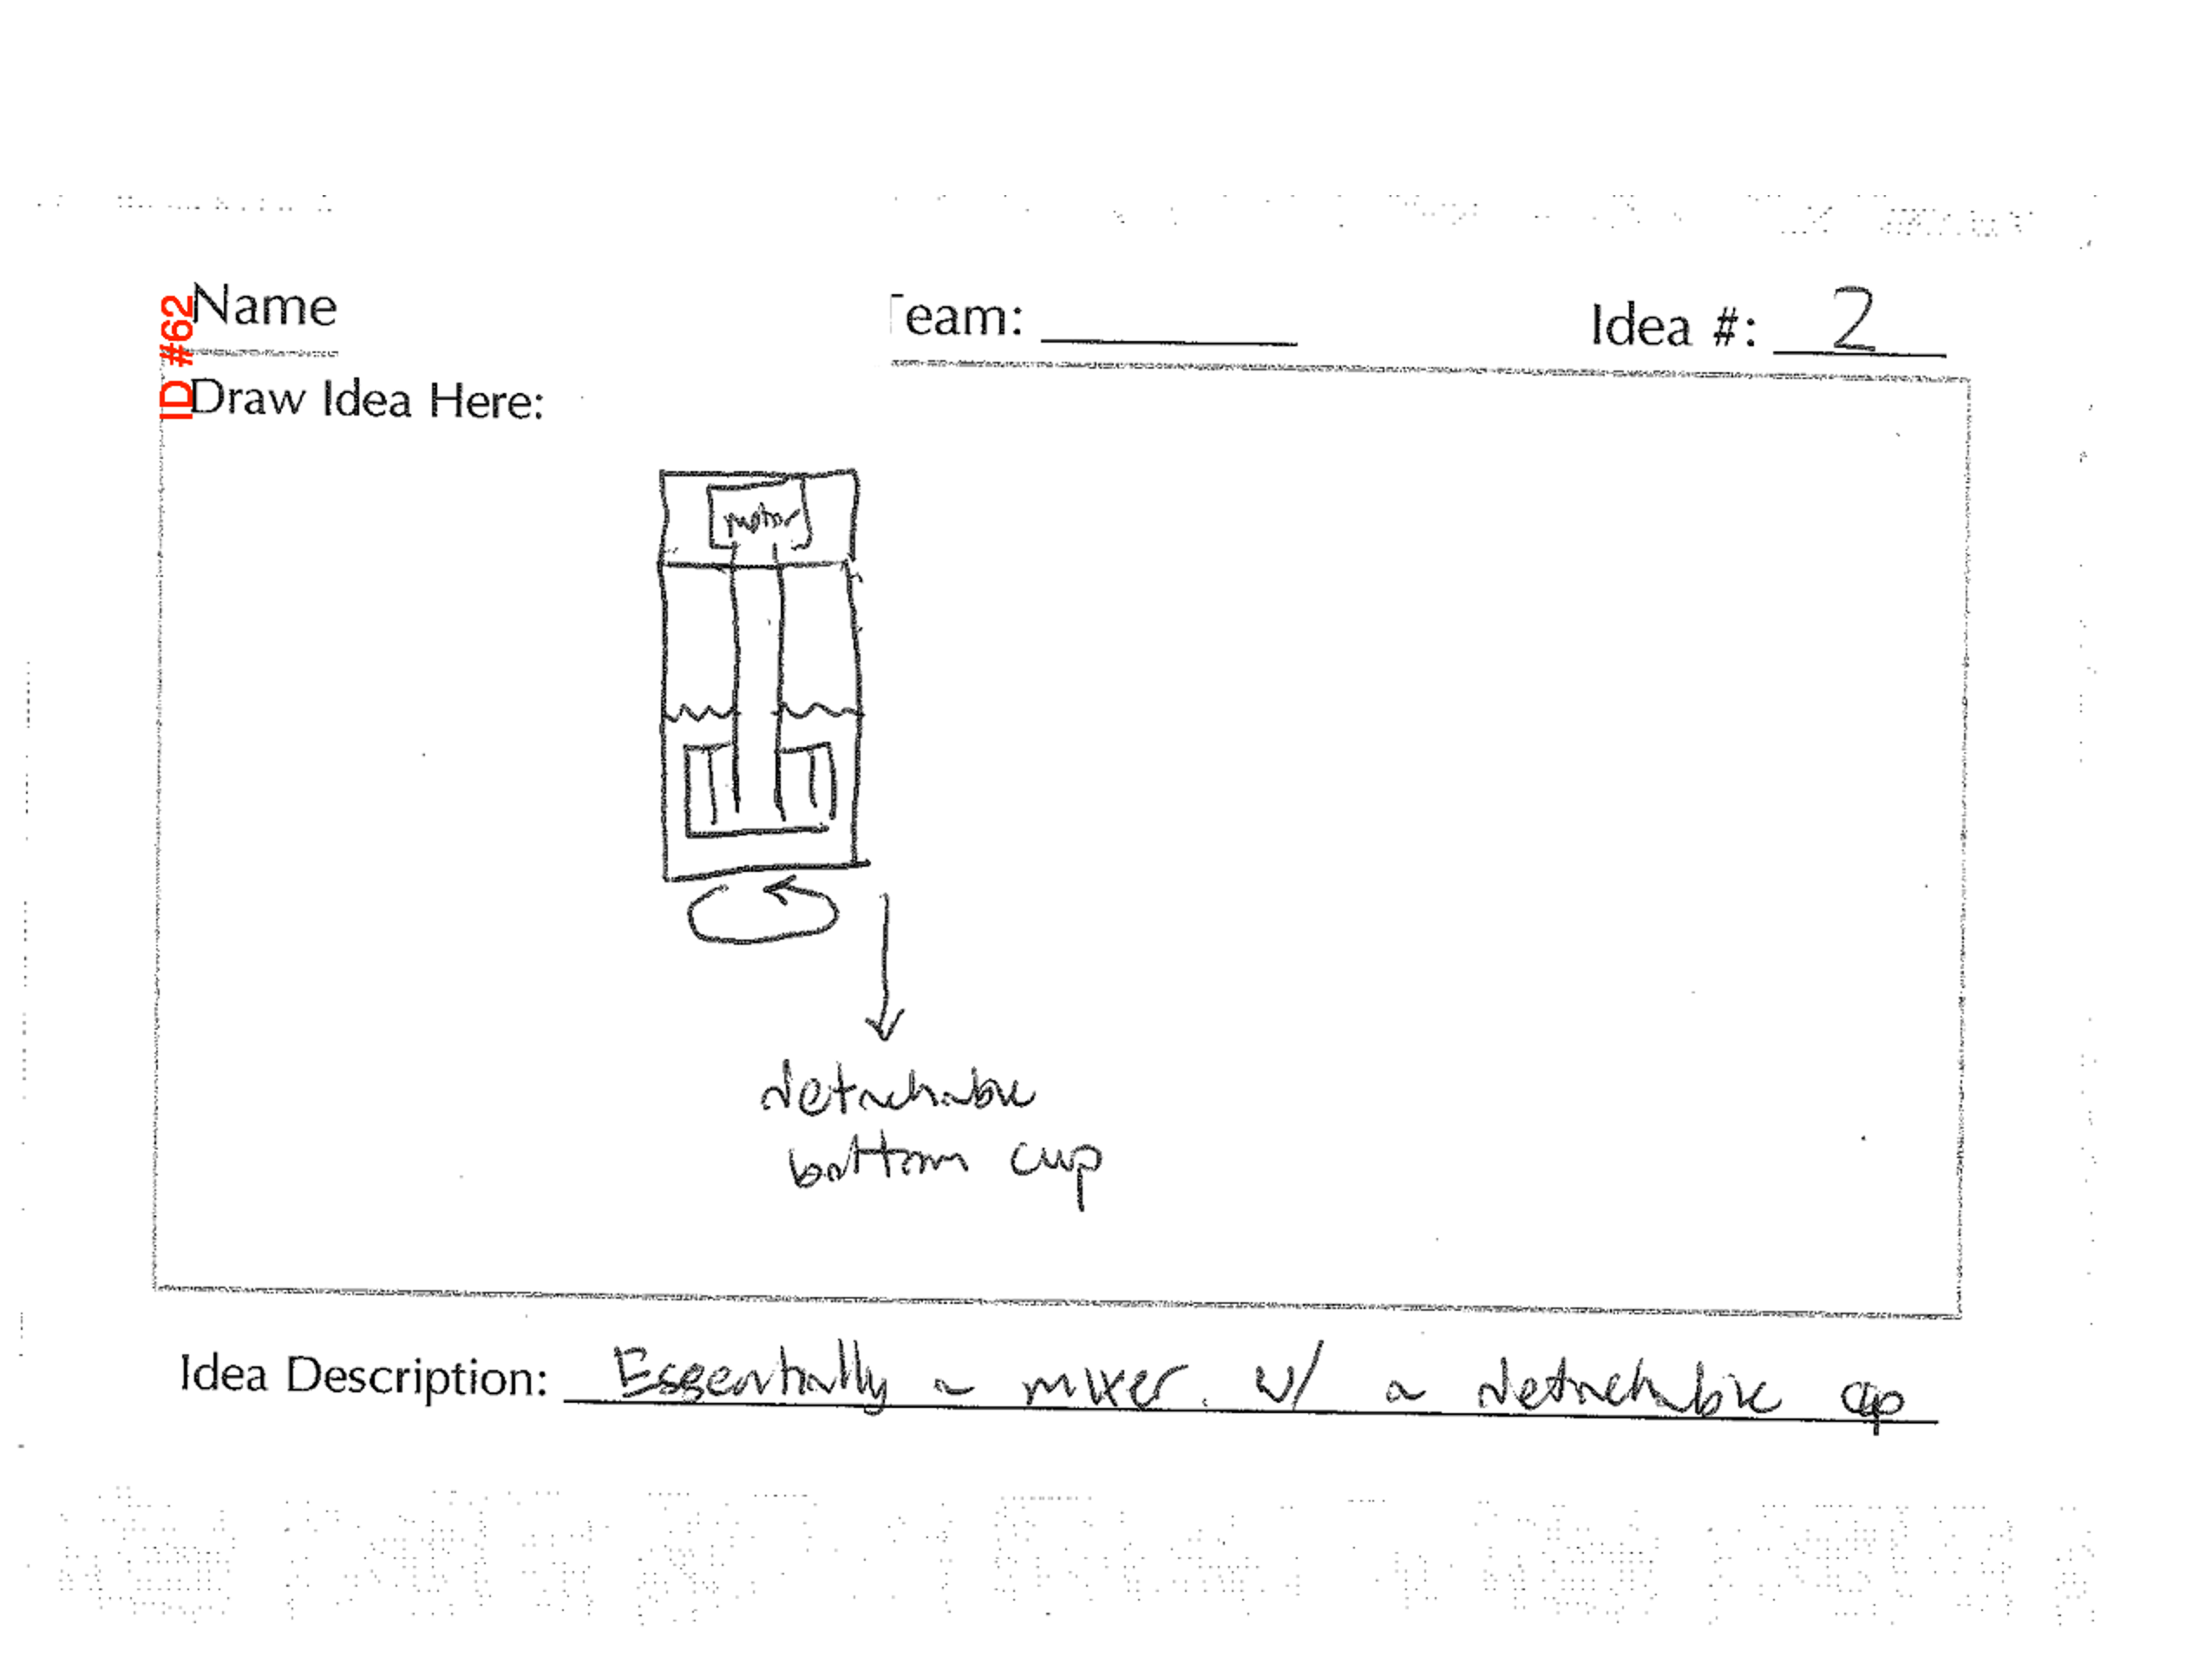 ID #62
Name
Team: Idea #: 2
Draw Idea Here:
motor
detachable
bottom cup
Idea Description: Essentially a mixer w/ a detachable cup